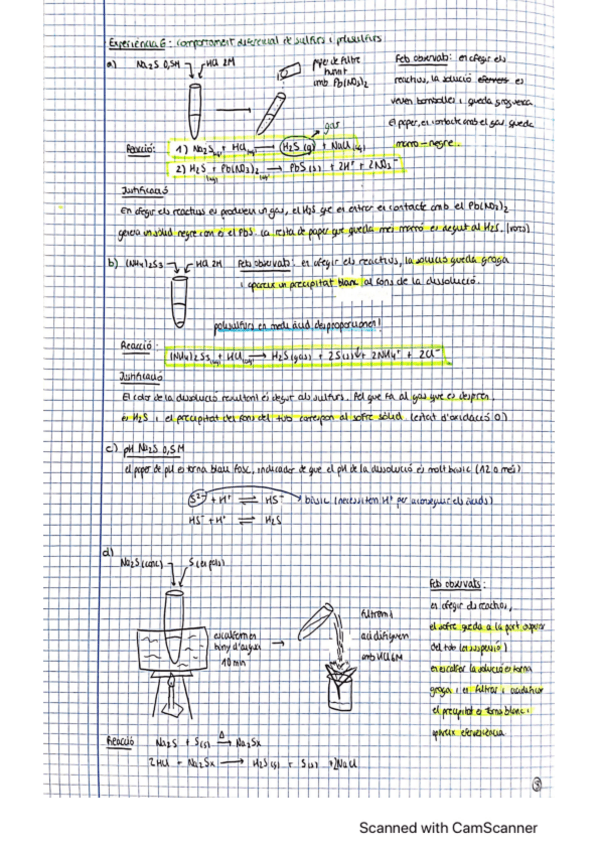 Experiència 6: comportament diferencial de sulfurs i polisulfurs
a) Na₂S 0,5M HCl 2M
paper de filtre
humit
amb Pb(NO₃)₂
Fets observats: en afegir els
reactius, la solució es
veuen bombolles i queda groguenca.
El paper, en contacte amb el gas queda
marró-negre.
gas
Reacció: 1) Na₂S(aq) + HCl(aq) → H₂S (g) + NaCl(aq)
2) H₂S(aq) + Pb(NO₃)₂(aq) → PbS(s) + 2H⁺ + 2NO₃⁻
Justificació
En afegir els reactius es produeix un gas, el H₂S que en entrar en contacte amb el Pb(NO₃)₂
genera un sòlid negre com és el PbS. La resta de paper que queda més marró és degut al H₂S.
b) (NH₄)₂S₃ HCl 2M Fets observats: en afegir els reactius, la solució queda groga
i apareix un precipitat blanc al fons de la dissolució.
polisulfurs en medi àcid desproporcionen!
Reacció:
(NH₄)₂S₃(aq) + HCl(aq) → H₂S(gas) + 2S(s)↓ + 2NH₄⁺ + 2Cl⁻
Justificació
El color de la dissolució resultant és degut als sulfurs. Pel que fa al gas que es desprèn,
és H₂S i el precipitat del fons del tub correspon al sofre sòlid. (estat d'oxidació 0)
c) pH Na₂S 0,5M
el paper de pH es torna blau fosc, indicador de que el pH de la dissolució és molt bàsic (12 o més)
S²⁻ + H⁺ ⇌ HS⁻ bàsic (necessitem H⁺ per aconseguir els àcids)
HS⁻ + H⁺ ⇌ H₂S
d)
Na₂S(conc) S(en pols)
escalfem en
bany d'aigua
10 min
filtrem i
acidifiquem
amb HCl 6M
Fets observats:
en afegir els reactius,
el sofre queda a la part superior
del tub (en suspensió)
en escalfar la solució es torna
groga i en filtrar i acidificar
el precipitat es torna blanc i
apareix efervescència
Reacció Na₂S + S(s) →Δ Na₂Sx
2HCl + Na₂Sx → H₂S(g) + S(s) + 2NaCl
Scanned with CamScanner